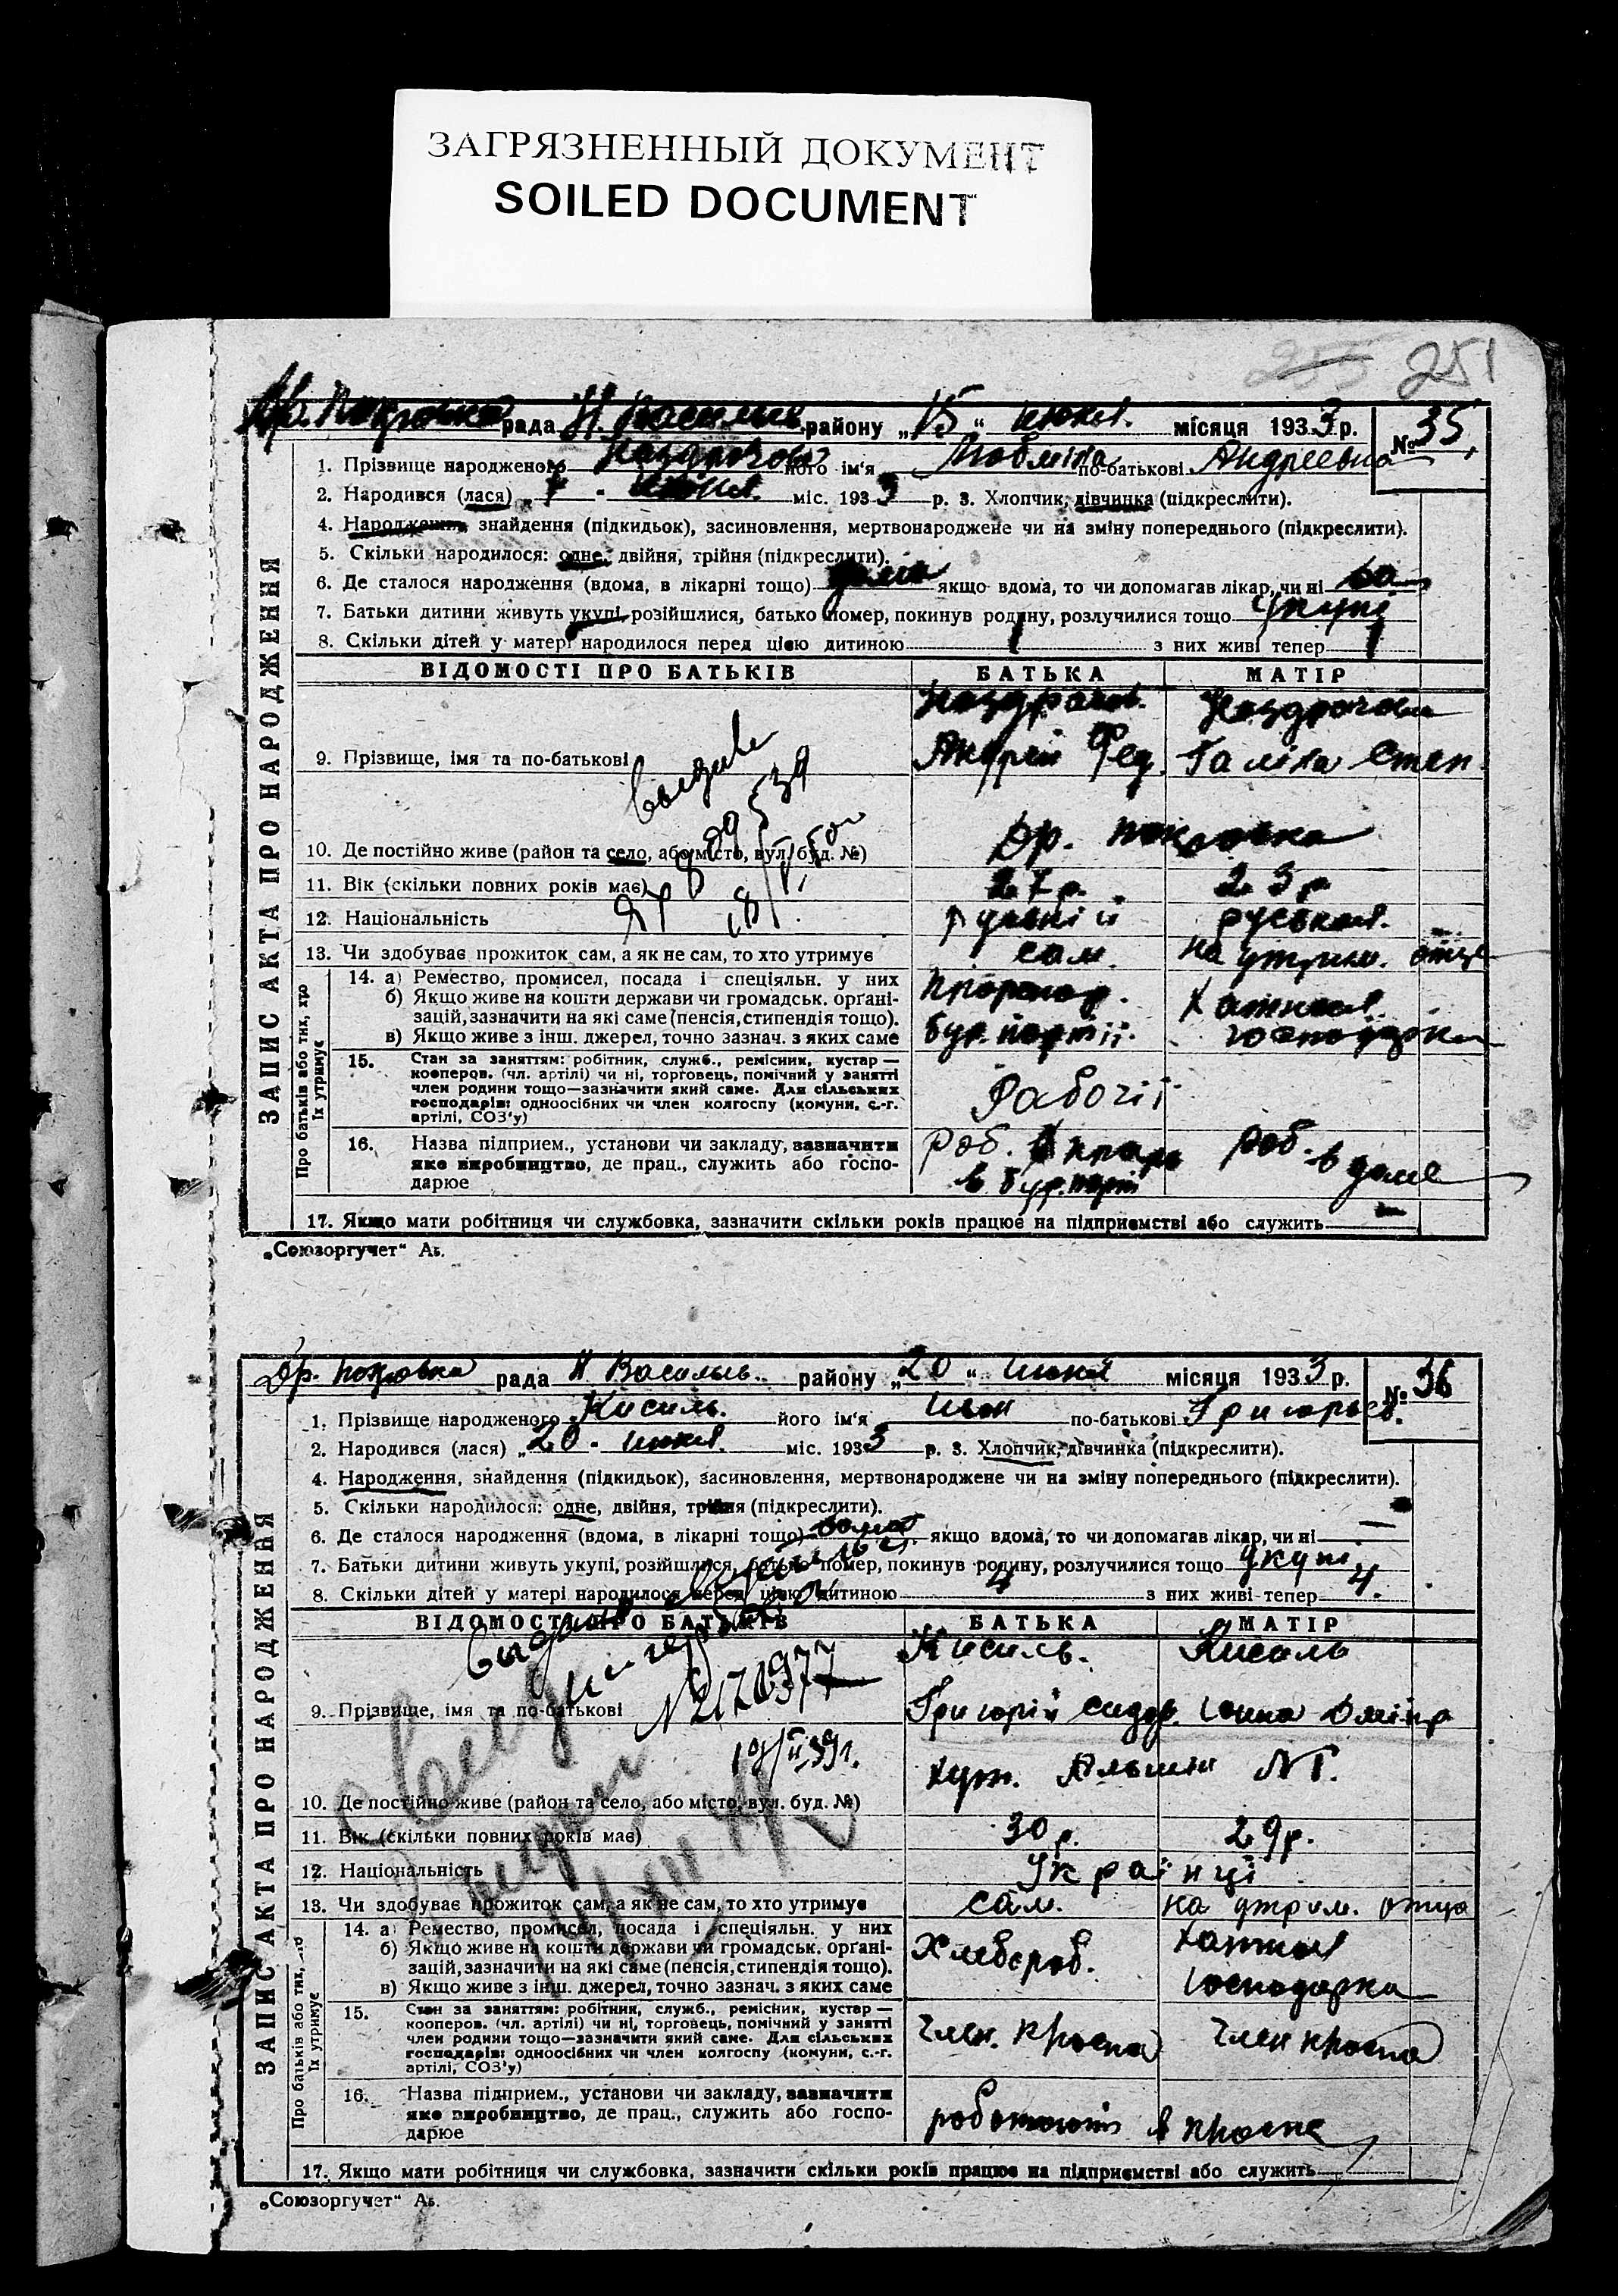 ЗАГРЯЗНЕННЫЙ ДОКУМЕНТ
SOILED DOCUMENT
255 251
рада Н Василь. району „15“ июня. місяця 1933 р. № 35.
1. Прізвище народженого його ім'я по-батькові Андреевна
2. Народився (лася) „7 - июня. міс. 1933 р. 3. Хлопчик, дівчинка (підкреслити).
4. Народження, знайдення (підкидьок), засиновлення, мертвонароджене чи на зміну попереднього (підкреслити).
5. Скільки народилося: одне, двійня, трійня (підкреслити).
6. Де сталося народження (вдома, в лікарні тощо) дома якщо вдома, то чи допомагав лікар, чи ні
7. Батьки дитини живуть укупі, розійшлися, батько помер, покинув родину, розлучилися тощо укупі
8. Скільки дітей у матері народилося перед цією дитиною 1 з них живі тепер 1
ЗАПИС АКТА ПРО НАРОДЖЕННЯ
ВІДОМОСТІ ПРО БАТЬКІВ БАТЬКА МАТІР
Ноздрачов. Ноздрачова
9. Прізвище, імя та по-батькові Андрей Фед. Галина Степ.
10. Де постійно живе (район та село, або місто, вул. буд. №) Др. Покровка
11. Вік (скільки повних років має) 27 р. 23 р.
12. Національність руська.
13. Чи здобуває прожиток сам, а як не сам, то хто утримує сам. на утрим. отца
Про батьків або тих, хто їх утримує
14. а) Ремество, промисел, посада і спеціяльн. у них
б) Якщо живе на кошти держави чи громадськ. органі-
зацій, зазначити на які саме (пенсія, стипендія тощо).
в) Якщо живе з інш. джерел, точно зазнач. з яких саме бур. партії. господарка
15. Стан за заняттям: робітник, служб., ремісник, кустар —
кооперов. (чл. артілі) чи ні, торговець, помічний у занятті
член родини тощо—зазначити який саме. Для сільських
господарів: одноосібних чи член колгоспу (комуни, с.-г.
артілі, СОЗ'у) Рабочіі
16. Назва підприєм., установи чи закладу, зазначити роб. роб. в доме
яке виробництво, де прац., служить або госпо- в бур. парт
дарює
17. Якщо мати робітниця чи службовка, зазначити скільки років працює на підприємстві або служить —
„Союзоргучет“ Аь.
Др. Покровка рада Н Василь. району „20“ июня місяця 1933 р. № 36
1. Прізвище народженого Кисиль. його ім'я Иван по-батькові Григорьев.
2. Народився (лася) „20 - июня. міс. 1933 р. 3. Хлопчик, дівчинка (підкреслити).
4. Народження, знайдення (підкидьок), засиновлення, мертвонароджене чи на зміну попереднього (підкреслити).
5. Скільки народилося: одне, двійня, трійня (підкреслити).
6. Де сталося народження (вдома, в лікарні тощо) дома якщо вдома, то чи допомагав лікар, чи ні —
7. Батьки дитини живуть укупі, розійшлися, батько помер, покинув родину, розлучилися тощо укупі
8. Скільки дітей у матері народилося перед цією дитиною 4 з них живі тепер 4.
ЗАПИС АКТА ПРО НАРОДЖЕННЯ
ВІДОМОСТІ ПРО БАТЬКІВ БАТЬКА МАТІР
Кисиль. Кисиль
9. Прізвище, імя та по-батькові Григорій Сидор.
хут.
10. Де постійно живе (район та село, або місто, вул. буд. №)
11. Вік (скільки повних років має) 30 р. 29 р.
12. Національність Українці
13. Чи здобуває прожиток сам, а як не сам, то хто утримує сам. на утрим. отца
Про батьків або тих, їх утримує
14. а) Ремество, промисел, посада і спеціяльн. у них
б) Якщо живе на кошти держави чи громадськ. органі- Хлебороб.
зацій, зазначити на які саме (пенсія, стипендія тощо).
в) Якщо живе з інш. джерел, точно зазнач. з яких саме господарка
15. Стан за заняттям: робітник, служб., ремісник, кустар —
кооперов. (чл. артілі) чи ні, торговець, помічний у занятті
член родини тощо—зазначити який саме. Для сільських член. член
господарів: одноосібних чи член колгоспу (комуни, с.-г.
артілі, СОЗ'у)
16. Назва підприєм., установи чи закладу, зазначити
яке виробництво, де прац., служить або госпо-
дарює
17. Якщо мати робітниця чи службовка, зазначити скільки років працює на підприємстві або служить
„Союзоргучет“ Аь.